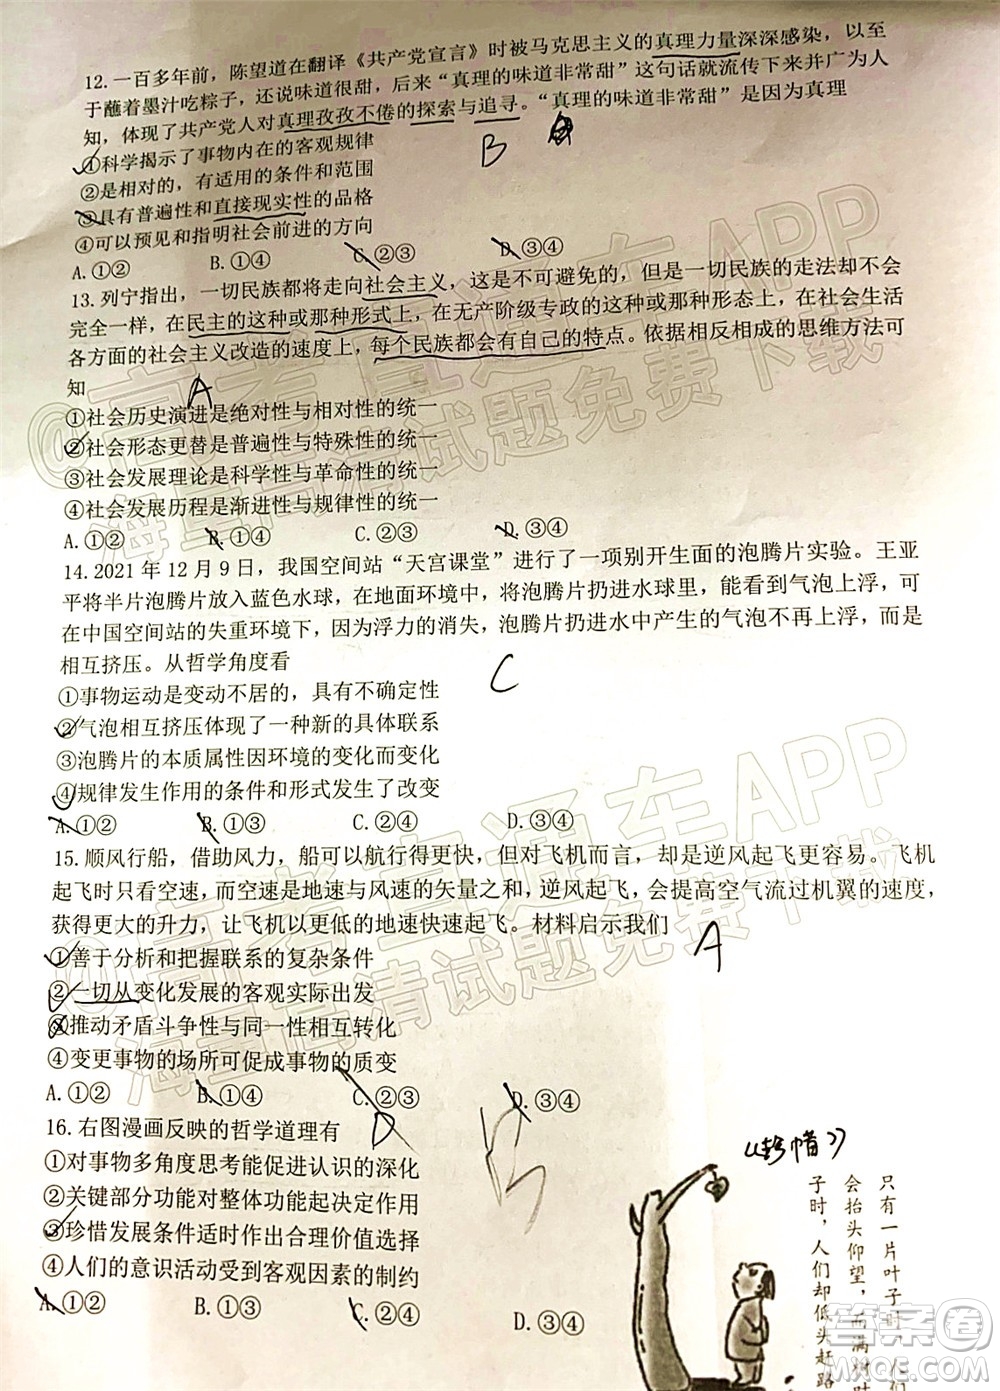 12.一百多年前，陈望道在翻译《共产党宣言》时被马克思主义的真理力量深深感染，以至
于蘸着墨汁吃粽子，还说味道很甜，后来“真理的味道非常甜”这句话就流传下来并广为人
知，体现了共产党人对真理孜孜不倦的探索与追寻。“真理的味道非常甜”是因为真理
B
①科学揭示了事物内在的客观规律
②是相对的，有适用的条件和范围
③具有普遍性和直接现实性的品格
④可以预见和指明社会前进的方向
A.①② B.①④ C.②③ D.③④
13.列宁指出，一切民族都将走向社会主义，这是不可避免的，但是一切民族的走法却不会
完全一样，在民主的这种或那种形式上，在无产阶级专政的这种或那种形态上，在社会生活
各方面的社会主义改造的速度上，每个民族都会有自己的特点。依据相反相成的思维方法可
知
A
①社会历史演进是绝对性与相对性的统一
②社会形态更替是普遍性与特殊性的统一
③社会发展理论是科学性与革命性的统一
④社会发展历程是渐进性与规律性的统一
A.①② B.①④ C.②③ D.③④
14.2021年12月9日，我国空间站“天宫课堂”进行了一项别开生面的泡腾片实验。王亚
平将半片泡腾片放入蓝色水球，在地面环境中，泡腾片扔进水球里，能看到气泡上浮，可
在中国空间站的失重环境下，因为浮力的消失，泡腾片扔进水中产生的气泡不再上浮，而是
相互挤压。从哲学角度看
C
①事物运动是变动不居的，具有不确定性
②气泡相互挤压体现了一种新的具体联系
③泡腾片的本质属性因环境的变化而变化
④规律发生作用的条件和形式发生了改变
A.①② B.①③ C.②④ D.③④
15.顺风行船，借助风力，船可以航行得更快，但对飞机而言，却是逆风起飞更容易。飞机
起飞时只看空速，而空速是地速与风速的矢量之和，逆风起飞，会提高空气流过机翼的速度，
获得更大的升力，让飞机以更低的地速快速起飞。材料启示我们
A
①善于分析和把握联系的复杂条件
②一切从变化发展的客观实际出发
③推动矛盾斗争性与同一性相互转化
④变更事物的场所可促成事物的质变
A.①② B.①④ C.②③ D.③④
16.右图漫画反映的哲学道理有
D
①对事物多角度思考能促进认识的深化
②关键部分功能对整体功能起决定作用
③珍惜发展条件适时作出合理价值选择
④人们的意识活动受到客观因素的制约
A.①② B.①③ C.②④ D.③④
《珍惜》
只有一片叶子时，人们
会抬头仰望，而满树叶
子时，人们却低头赶路
@高考直通车APP
海量高清试题免费下载
@高考直通车APP
海量高清试题免费下载
答案卷
MXQE.COM